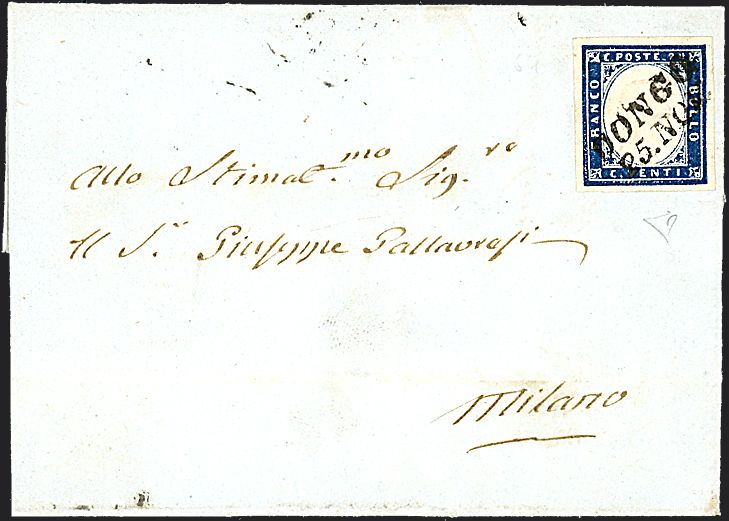 C. POSTE. 2
FRANCO
BOLLO
C. VENTI.
DONGO
25. NOV.
Allo Stimat.mo Sig.re
Il S.r Giuseppe Pallavresi
Milano